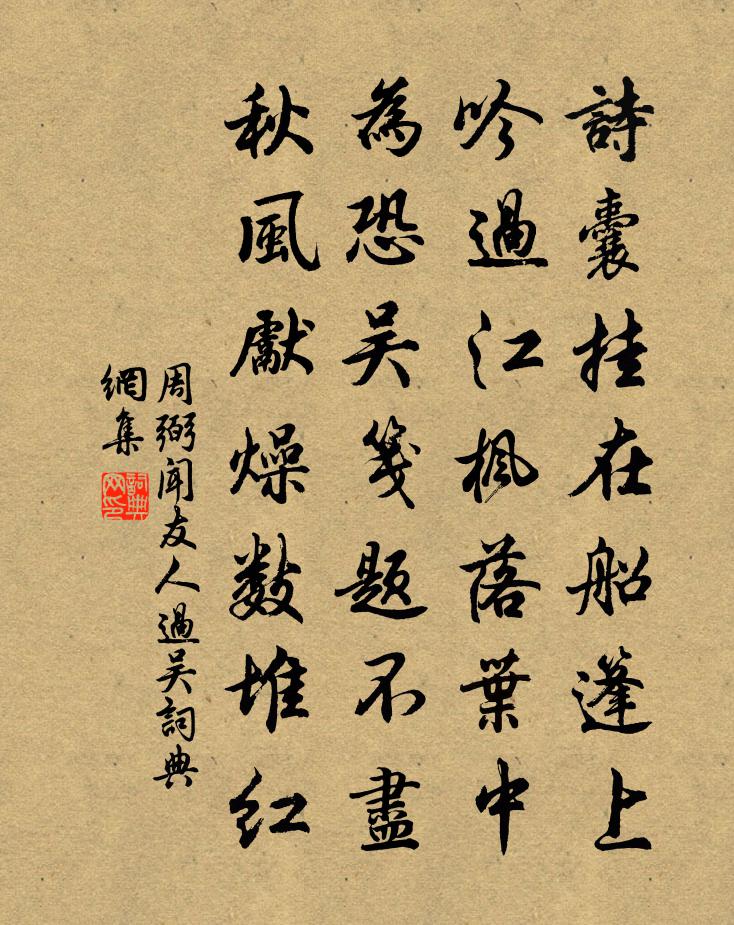 詩囊挂在船篷上
吟過江枫落葉中
為恐吴箋題不盡
秋風獻燥数堆紅
周弼闻友人過吴詞典
網集
詞典网印